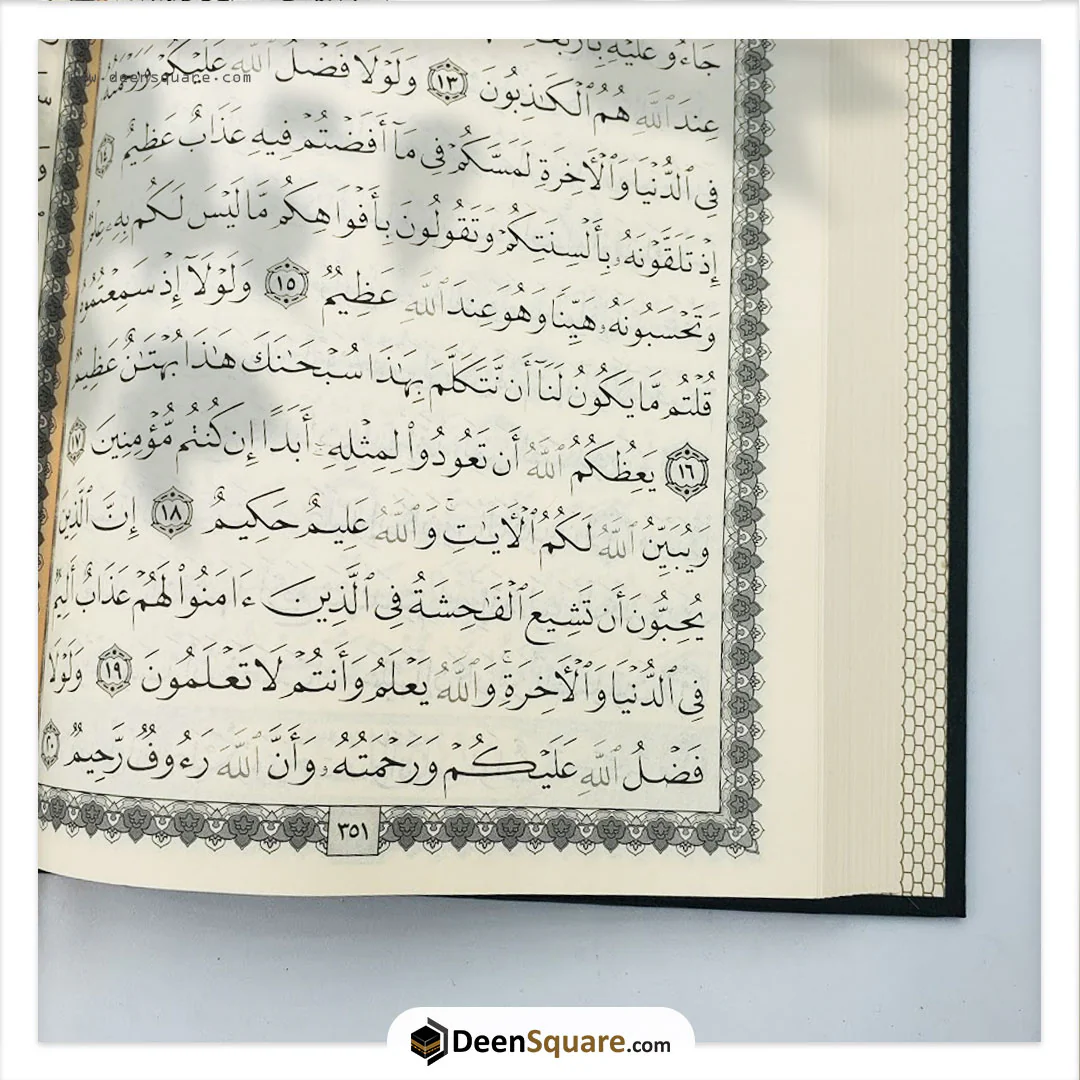 www.deensquare.com
جَآءُو عَلَيْهِ بِأَرْبَعَةِ
عِندَ ٱللَّهِ هُمُ ٱلْكَٰذِبُونَ ١٣ وَلَوْلَا فَضْلُ ٱللَّهِ عَلَيْكُمْ وَرَحْمَتُهُۥ
فِى ٱلدُّنْيَا وَٱلْأَخِرَةِ لَمَسَّكُمْ فِى مَآ أَفَضْتُمْ فِيهِ عَذَابٌ عَظِيمٌ ١٤
إِذْ تَلَقَّوْنَهُۥ بِأَلْسِنَتِكُمْ وَتَقُولُونَ بِأَفْوَاهِكُم مَّا لَيْسَ لَكُم بِهِۦ عِلْمٌ
وَتَحْسَبُونَهُۥ هَيِّنًا وَهُوَ عِندَ ٱللَّهِ عَظِيمٌ ١٥ وَلَوْلَآ إِذْ سَمِعْتُمُوهُ
قُلْتُم مَّا يَكُونُ لَنَآ أَن نَّتَكَلَّمَ بِهَٰذَا سُبْحَٰنَكَ هَٰذَا بُهْتَٰنٌ عَظِيمٌ
١٦ يَعِظُكُمُ ٱللَّهُ أَن تَعُودُوا۟ لِمِثْلِهِۦٓ أَبَدًا إِن كُنتُم مُّؤْمِنِينَ ١٧
وَيُبَيِّنُ ٱللَّهُ لَكُمُ ٱلْأَيَٰتِ ۚ وَٱللَّهُ عَلِيمٌ حَكِيمٌ ١٨ إِنَّ ٱلَّذِينَ
يُحِبُّونَ أَن تَشِيعَ ٱلْفَٰحِشَةُ فِى ٱلَّذِينَ ءَامَنُوا۟ لَهُمْ عَذَابٌ أَلِيمٌ
فِى ٱلدُّنْيَا وَٱلْأَخِرَةِ ۚ وَٱللَّهُ يَعْلَمُ وَأَنتُمْ لَا تَعْلَمُونَ ١٩ وَلَوْلَا
فَضْلُ ٱللَّهِ عَلَيْكُمْ وَرَحْمَتُهُۥ وَأَنَّ ٱللَّهَ رَءُوفٌ رَّحِيمٌ ٢٠
٣٥١
DeenSquare.com